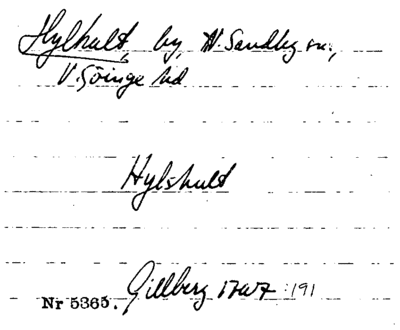 Hylhult, by, N. Sandby sn.,
V. Göinge hd
Hylshult
Gillberg 1767 :191
Nr 5365.